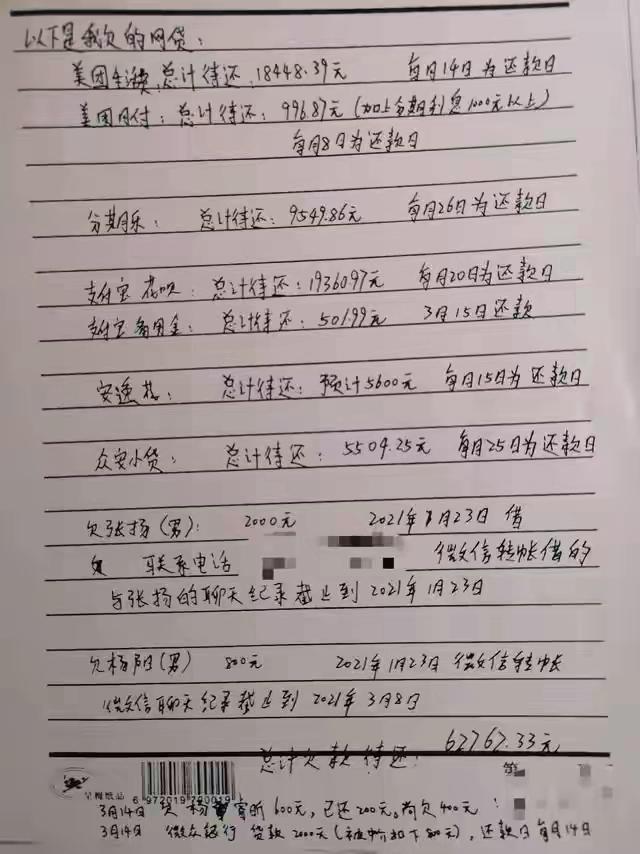 以下是我欠的网贷:
美团生活费:总计待还:18448.39元 每月14日为还款日
美团月付:总计待还:996.87元(加上分期利息1000元以上)
每月8日为还款日
分期乐: 总计待还:9549.86元 每月26日为还款日
支付宝花呗:总计待还:19360.97元 每月20日为还款日
支付宝备用金:总计待还:501.99元 3月15日还款
安逸花: 总计待还:预计5600元 每月15日为还款日
众安小贷: 总计待还:5504.25元 每月25日为还款日
欠张扬(男): 2000元 2021年1月23日 借
联系电话 微信转帐借的
与张扬的聊天纪录截止到2021年1月23日
欠杨阳(男) 800元 2021年1月23日 微信转帐
微信聊天纪录截止到2021年3月8日
总计欠款待还: 62762.33元
第
呈帽纸品 6 972019 790019
3月14日 欠杨 昕600元,已还200元,尚欠400元
3月14日 微众银行 贷款2000元( 扣下800元),还款日每月14日